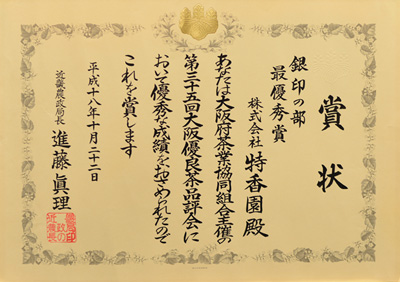 賞状
銀印の部
最優秀賞
株式会社 特香園殿
あなたは大阪府茶業協同組合主催の
第三十五回大阪優良茶品評会に
おいて優秀な成績をおさめられたので
これを賞します
平成十八年十月二十二日
近畿農政局長 進藤眞理